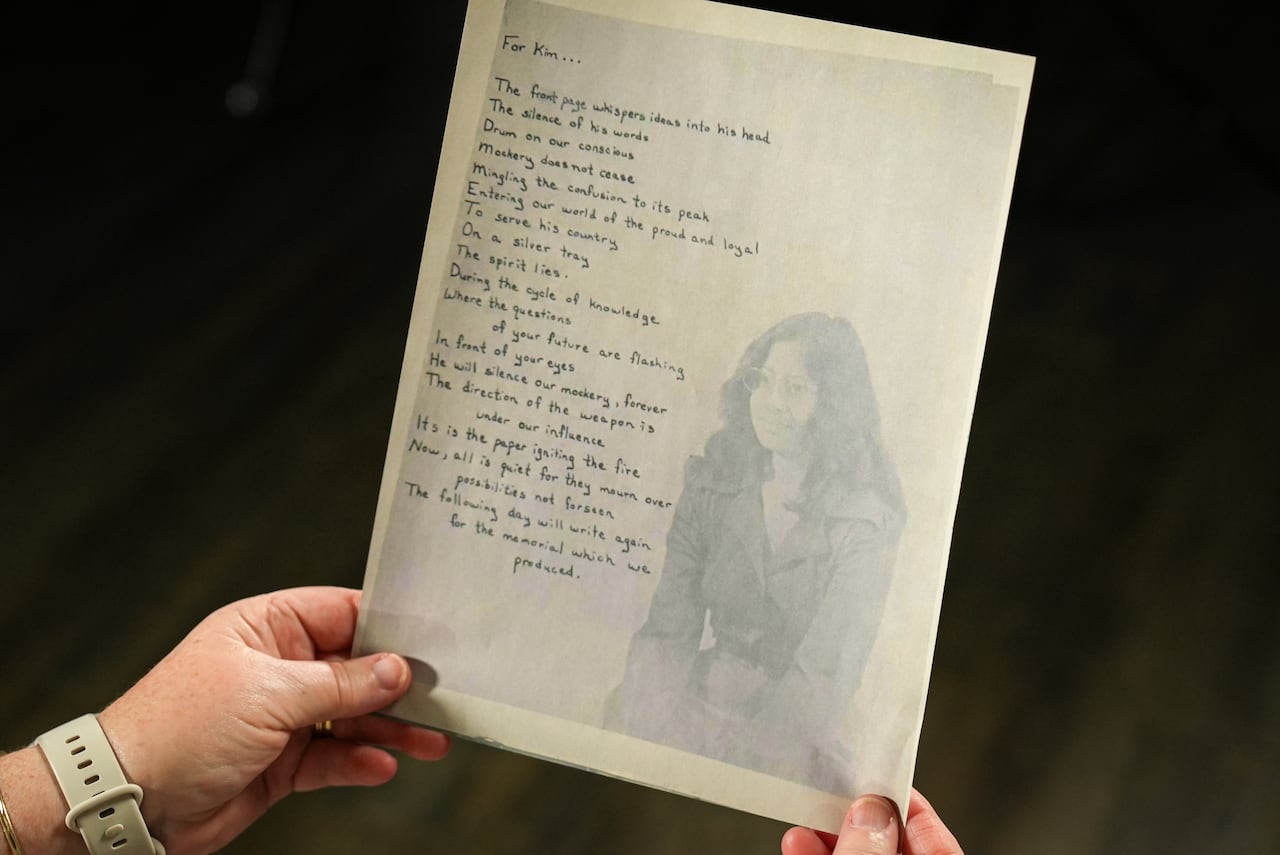 For Kim...
The front page whispers ideas into his head
The silence of his words
Drum on our conscious
Mockery does not cease
Mingling the confusion to its peak
Entering our world of the proud and loyal
To serve his country
On a silver tray
The spirit lies.
During the cycle of knowledge
Where the questions
of your future are flashing
In front of your eyes
He will silence our mockery, forever
The direction of the weapon is
under our influence
Its is the paper igniting the fire
Now, all is quiet for they mourn over
possibilities not forseen
The following day will write again
for the memorial which we
produced.